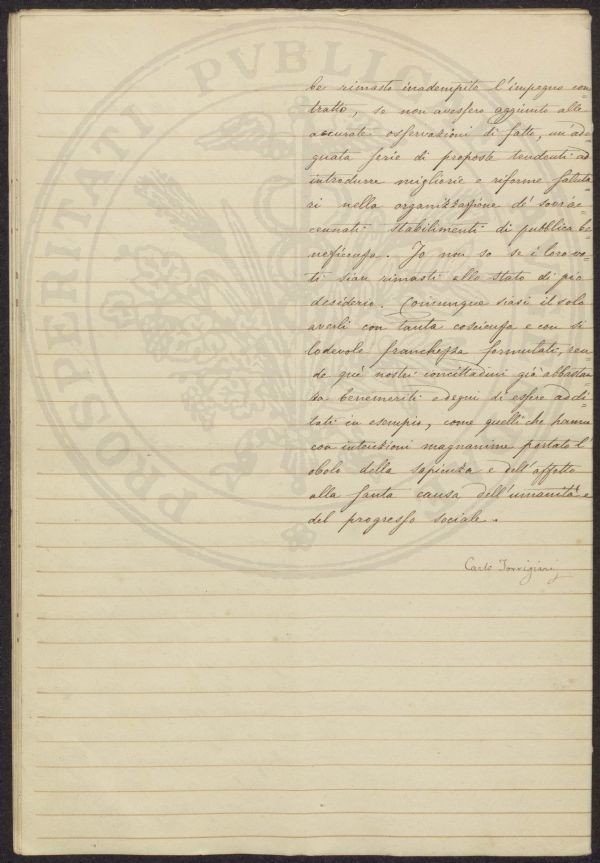 PROSPERITATI PVBLIC
be rimasto inadempito l'impegno con=
tratto, se non avessero aggiunto alle
accurate osservazioni di fatto, un'ade=
guata serie di proposte tendenti ad
introdurre migliorie e riforme saluta=
ri nella organizzazione de' sovrac=
cennati stabilimenti di pubblica be=
neficenza. Io non so se i loro vo=
ti sian rimasti allo stato di pio
desiderio. Comunque siasi il solo
averli con tanta coscienza e con sì
lodevole franchezza formulati, ren=
de quei nostri concittadini già abbastan
za benemeriti e degni di essere addi=
tati in esempio, come quelli che hanno
con intenzioni magnanime portato l'
obolo della sapienza e dell'affetto
alla santa causa dell'umanità e
del progresso sociale.
Carlo Torrigiani